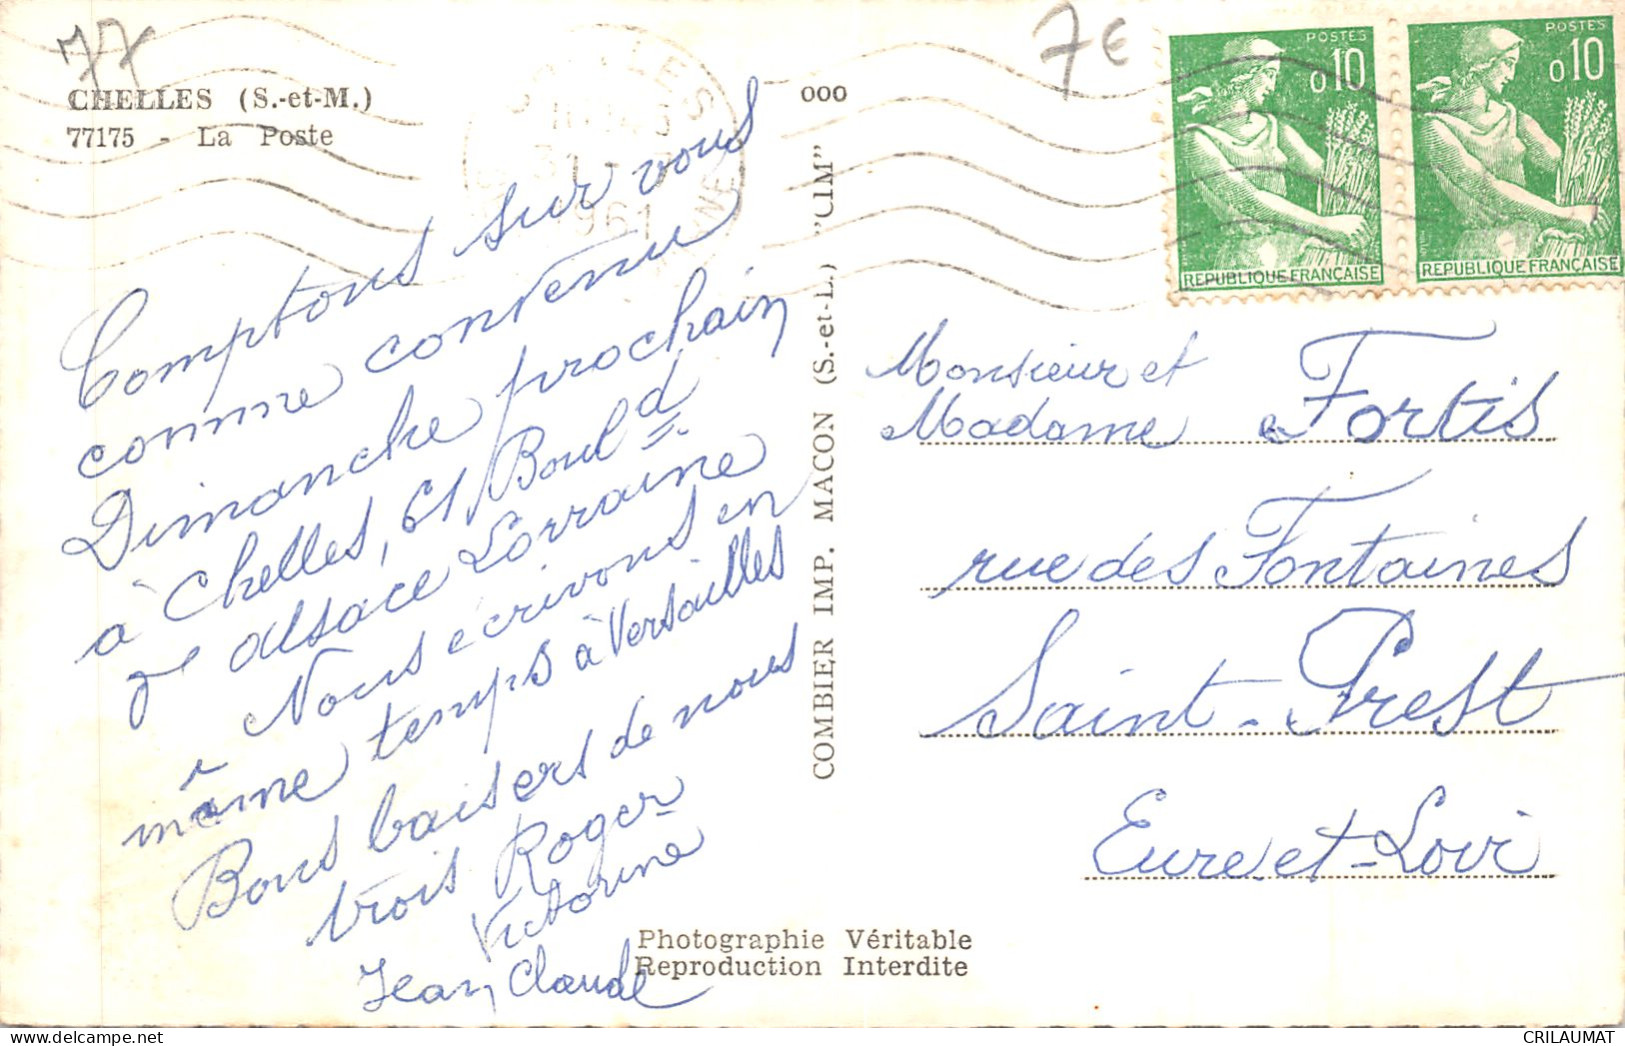 77
7€
CHELLES (S.-et-M.)
77175 - La Poste
000
1961
POSTES
0,10
REPUBLIQUE FRANÇAISE
POSTES
0,10
REPUBLIQUE FRANÇAISE
Comptons sur vous
comme convenu
Dimanche prochain
à Chelles, 61 Bould
Alsace Lorraine
Nous écrivons en
même temps à Versailles
Bons baisers de nous
trois Roger
Victorine
Jean Claude
COMBIER IMP. MACON (S.-et-L.) "CIM"
Monsieur et
Madame Fortis
rue des Fontaines
Saint-Prest
Eure-et-Loir
Photographie Véritable
Reproduction Interdite
CRILAUMAT